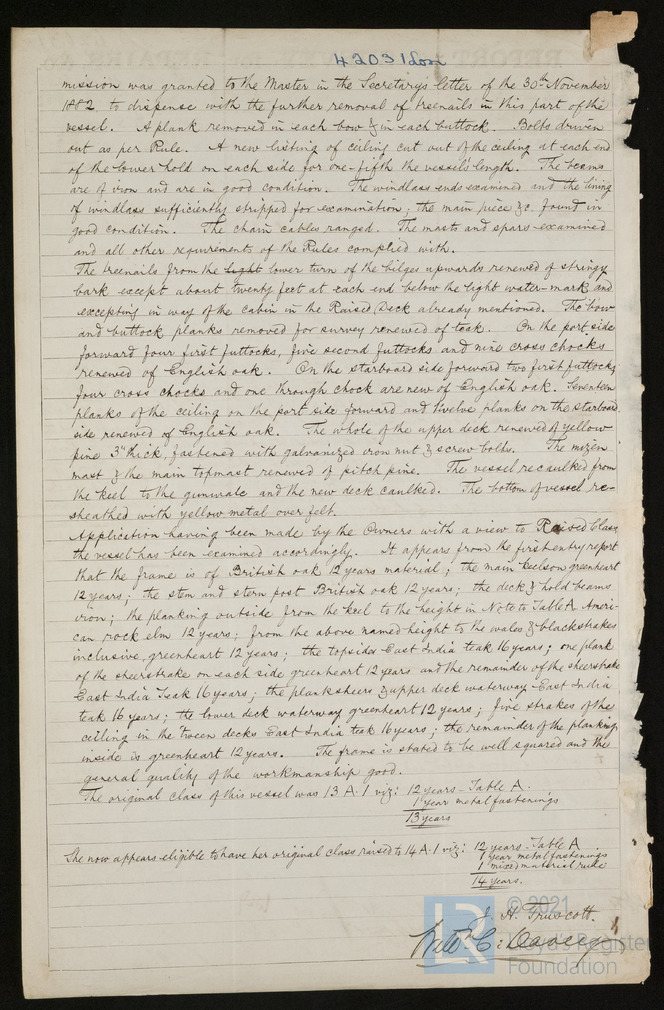 42031 Lon
mission was granted to the Master in the Secretary's letter of the 30th November
1882 to dispense with the further removal of treenails in this part of the
vessel. A plank removed in each bow & in each buttock. Bolts driven
out as per Rule. A new listing of ceiling cut out of the ceiling at each end
of the lower hold on each side for one-fifth the vessel's length. The beams
are of iron and are in good condition. The windlass ends examined and the lining
of windlass sufficiently stripped for examination; the main piece &c. found in
good condition. The chain cables ranged. The masts and spars examined
and all other requirements of the Rules complied with.
The treenails from the light lower turn of the bilges upwards renewed of stringy
bark except about twenty feet at each end below the light water-mark and
excepting in way of the cabin in the Raised Deck already mentioned. The bow
and buttock planks removed for survey renewed of teak. On the port side
forward four first futtocks, five second futtocks and nine cross chocks
renewed of English oak. On the starboard side forward two first futtocks
four cross chocks and one through chock are new of English oak. Seventeen
planks of the ceiling on the port side forward and twelve planks on the starboard
side renewed of English oak. The whole of the upper deck renewed of yellow
pine 3" thick, fastened with galvanized iron nut & screw bolts. The mizen
mast & the main topmast renewed of pitch pine. The vessel recaulked from
the keel to the gunwale and the new deck caulked. The bottom of vessel re-
sheathed with yellow metal over felt.
Application having been made by the Owners with a view to Raised Class
the vessel has been examined accordingly. It appears from the first entry report
that the frame is of British oak 12 years material; the main keelson greenheart
12 years; the stem and stern post British oak 12 years; the deck & hold beams
iron; the planking outside from the keel to the height in Note to Table A Ameri-
can rock elm 12 years; from the above named height to the wales & blackstrakes
inclusive, greenheart 12 years; the topsides East India teak 16 years; one plank
of the sheerstrake on each side greenheart 12 years and the remainder of the sheerstrake
East India Teak 16 years; the planksheers & upper deck waterway East India
teak 16 years; the lower deck waterway greenheart 12 years; five strakes of the
ceiling in the 'tween decks East India teak 16 years; the remainder of the planking
inside is greenheart 12 years. The frame is stated to be well squared and the
general quality of the workmanship good.
The original class of this vessel was 13 A.1 viz: 12 years - Table A.
1 year metal fastenings
13 years
She now appears eligible to have her original class raised to 14 A.1 viz: 12 years - Table A
1 year metal fastenings
1 " mixed material rule
14 years.
J. H. Truscott.
© 2021
LR Lloyd's Register
Foundation